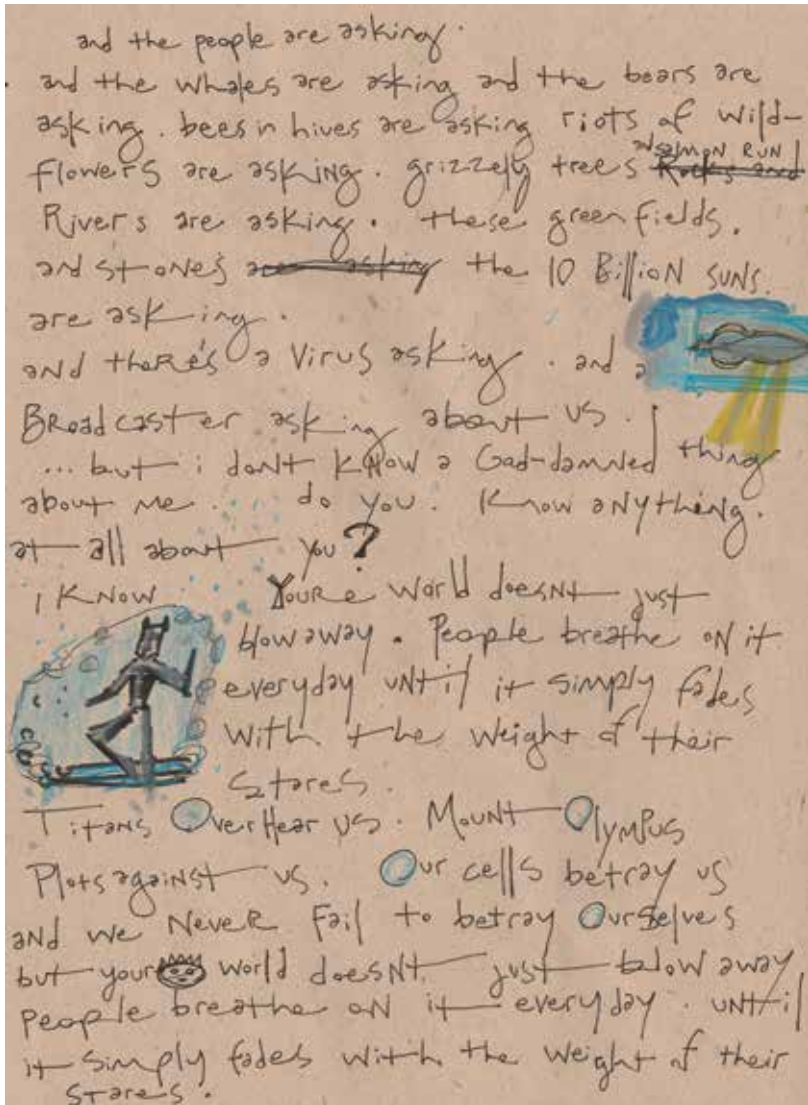 and the people are asking.
and the whales are asking and the bears are
asking. bees in hives are asking riots of wild-
flowers are asking. grizzely trees and salmon run
Rocks and
Rivers are asking. these green fields.
and stones are asking the 10 Billion suns.
are asking.
and there's a Virus asking. and a
Broadcaster asking about us.
... but i dont know a God-damned thing
about me. do you. Know anything.
at all about you?
I KNOW Youre world doesnt just
blow away. People breathe on it
everyday until it simply fades
with the weight of their
stares.
Titans OverHear us. Mount Olympus
Plots against us. Our cells betray us
and we Never Fail to betray Ourselves
but your world doesnt just blow away
people breathe on it everyday. until
it simply fades with the weight of their
stares.